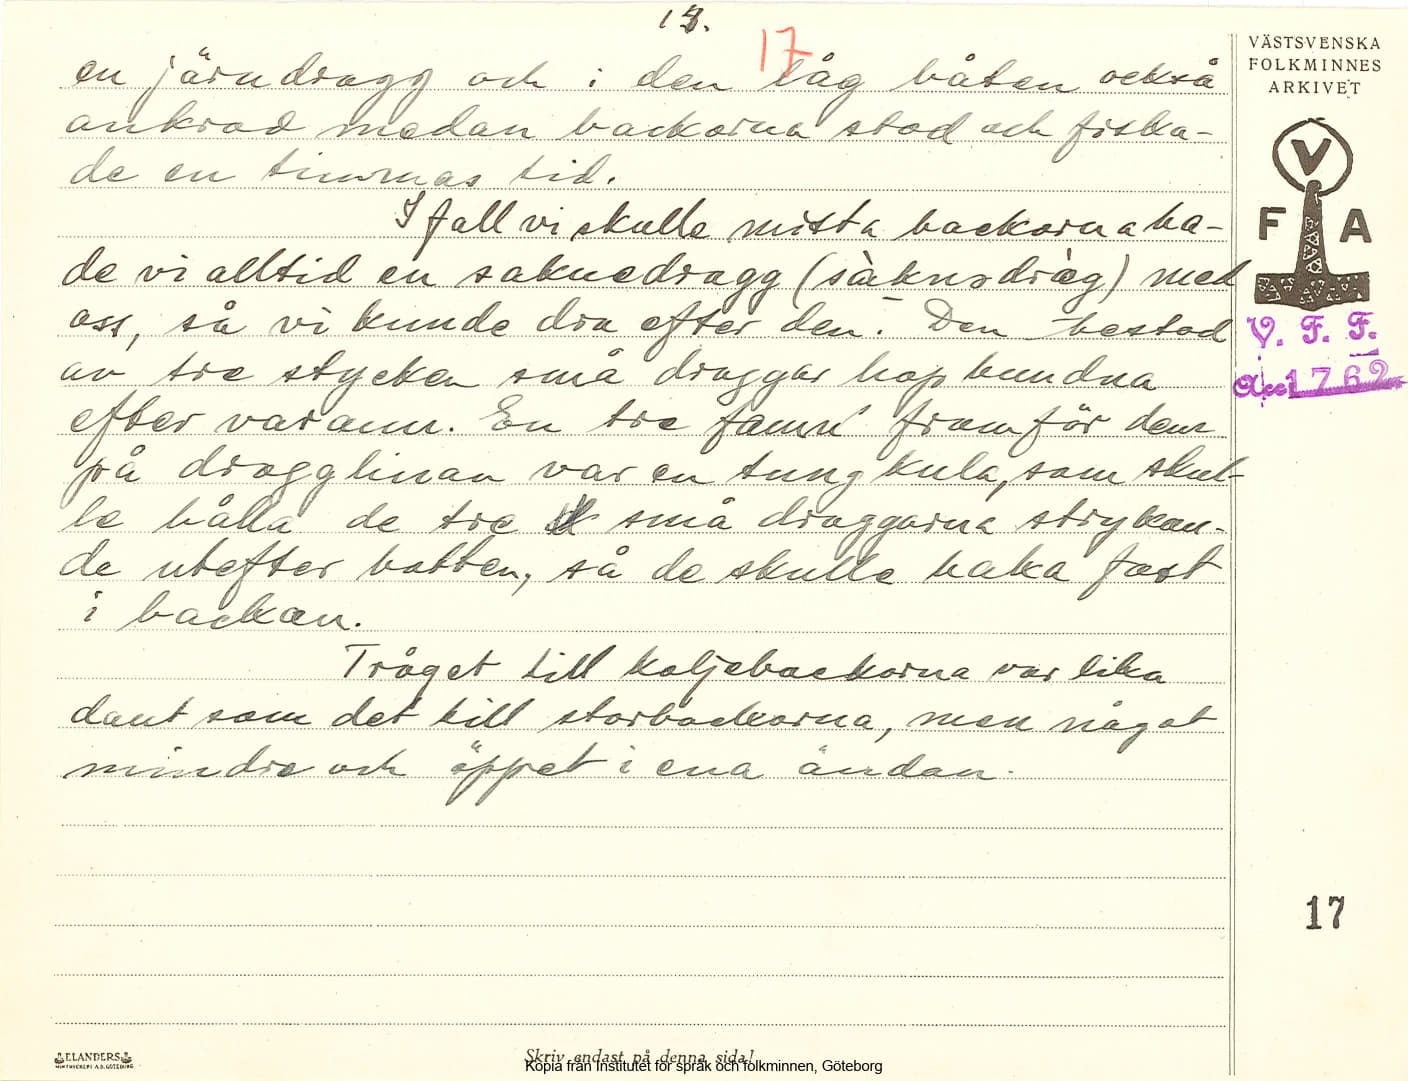 13.
17
en järndragg och i den låg båten också
ankrad medan backorna stod och fiska-
de en timmas tid.
I fall vi skulle mista backorna ha-
de vi alltid en saknedragg (sàknədràg) med
oss, så vi kunde dra efter den. Den bestod
av tre stycken små draggar hop bundna
efter varann. En tre famn framför dem
på dragglinan var en tung kula, som skul-
le hålla de tre små draggarna strykan-
de utefter botten, så de skulle haka fast
i backan.
Tråget till koljebackorna var lika
dant som det till storbackorna, men något
mindre och öppet i ena ändan.
VÄSTSVENSKA
FOLKMINNES
ARKIVET
V
F A
V. F. F.
Acc 1762
17
ELANDERS
Skriv endast på denna sida!
Kopia från Institutet för språk och folkminnen, Göteborg